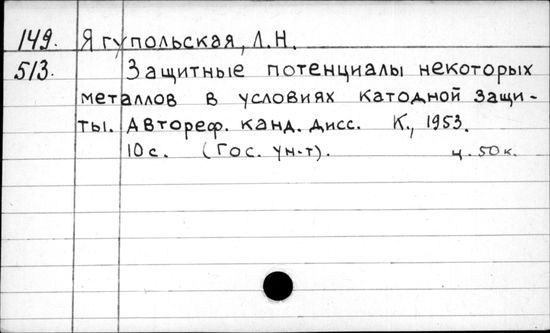 149. Ягупольская, Л.Н.
513. Защитные потенциалы некоторых
металлов в условиях катодной защи-
ты. Автореф. канд. дисс. К., 1953.
10 с. (Гос. ун-т). ц. 50 к.